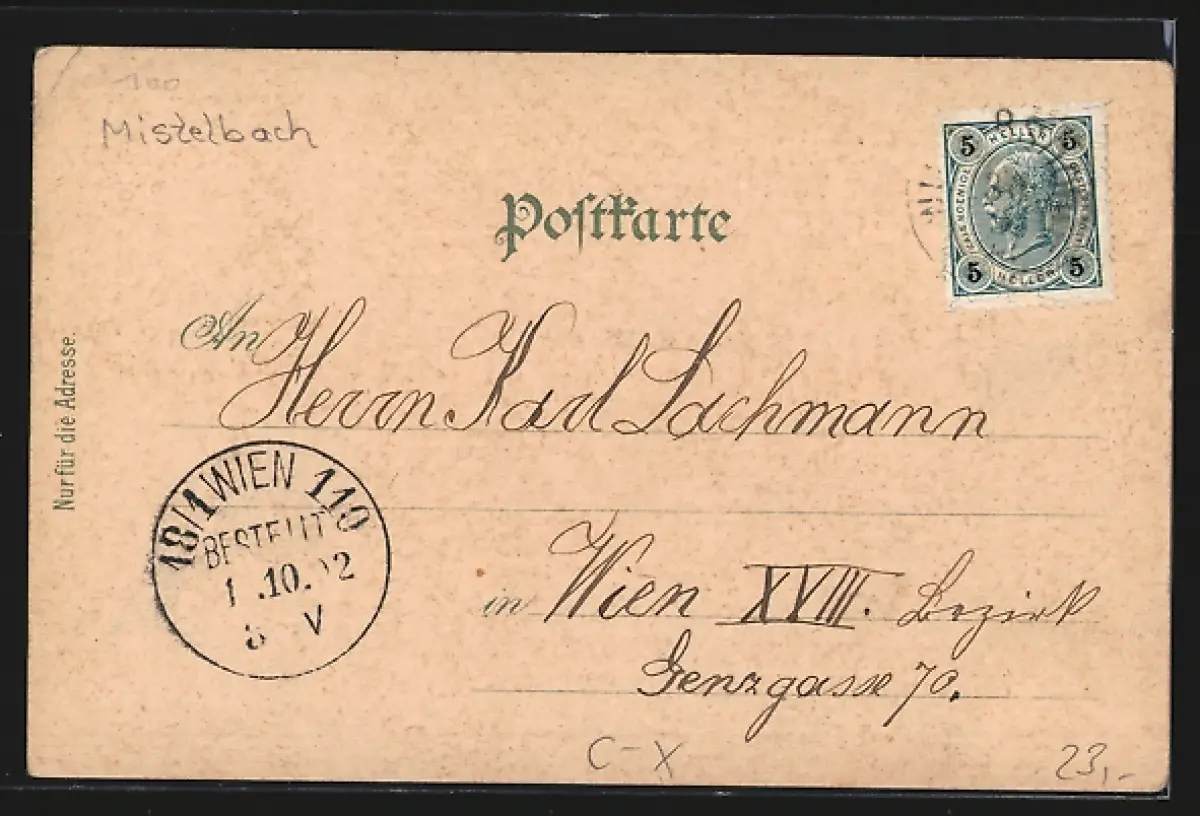 100
Mistelbach
Postkarte
5 HELLER 5
5 HELLER 5
An Herrn Karl Lachmann
Nur für die Adresse.
18/1 WIEN 110
BESTELLT
1.10.02
8 V
in Wien XVIII. Bezirk
Genzgasse 70.
C-X
23,-